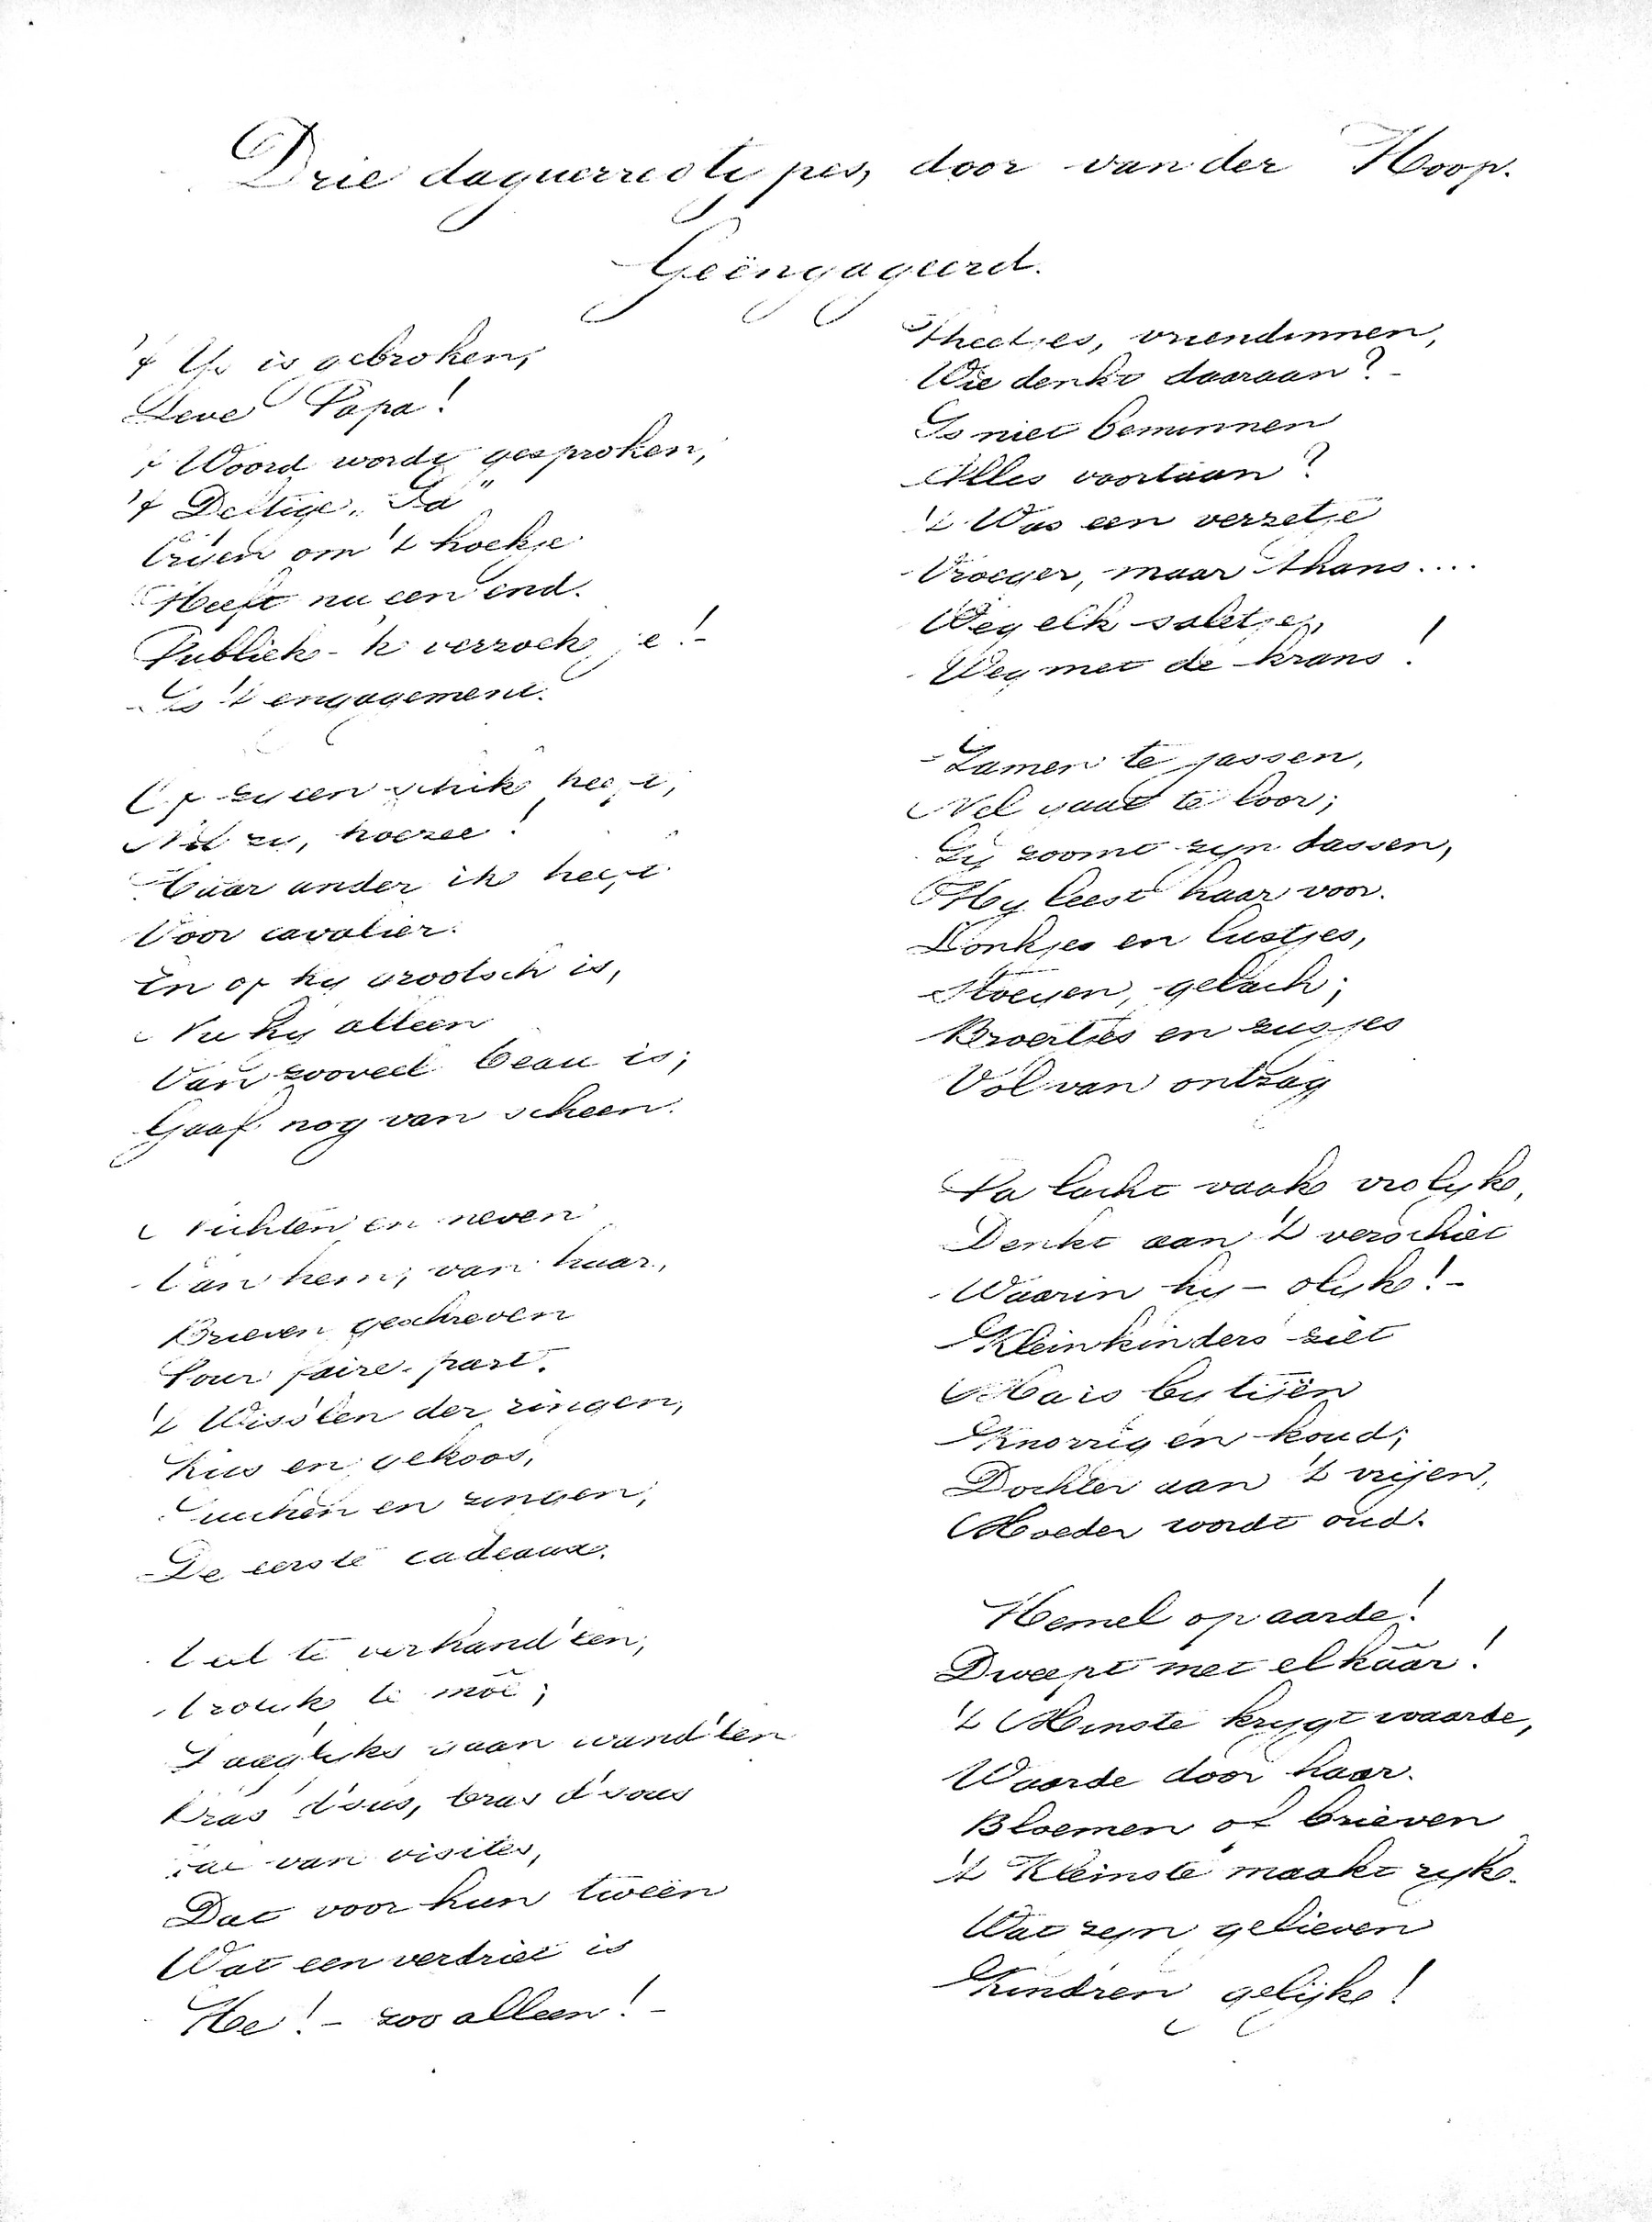 Drie daguerreotypes, door van der Hoop.
Geëngageerd.
't Ys is gebroken,
Lieve Papa!
't Woord wordt gesproken,
't Deftige „Ja"
Vrijen om 't hoekje
Heeft nu een end.
Publiek - 'k verzoek je! -
Is 't engagement.
Of zy een schik heeft,
Nu zy, hoezee!
Haar ander ik heeft
Voor cavalier.
En of hy grootsch is,
Nu hy alleen
Van zooveel beau is;
Gaaf nog van scheen.
Nichten en neven
Van hem, van haar,
Brieven geschreven
Pour faire-part.
't Wiss'len der ringen,
Kus en gekoos,
en zingen;
De eerste cadeaux.
Veel te verhand'len,
Vrolijk te moê;
Daaglijks gaan wand'len
Bras d'sus, bras d'sous
Tal van visites,
Dat voor hun tweën
Wat een verdriet is
He! - zoo alleen! -
Theetjes, vriendinnen,
Wie denkt daaraan? -
Is niet beminnen
Alles voortaan?
't Was een verzetje
Vroeger, maar thans....
Weg elk saletje,
Weg met de krans!
Zamen te passen,
Nel gaat te loor;
Zy zoomt zyn dassen,
Hy leest haar voor.
Lonkjes en lustjes,
Stoeyen, gelach;
Broertjes en zusjes
Vol van ontzag
Pa lacht vaak vrolyk,
Denkt aan 't verschiet
Waarin hy - olyk! -
Kleinkinders ziet
Ma is by tijën
Knorrig en koud;
Dochter aan 't vrijen,
Moeder wordt oud.
Hemel op aarde!
Dweept met elkaâr!
't Minste krygt waarde,
Waarde door haar.
Bloemen of brieven
't Kleinste maakt ryk.
Wat zyn gelieven
Kindren gelijk!